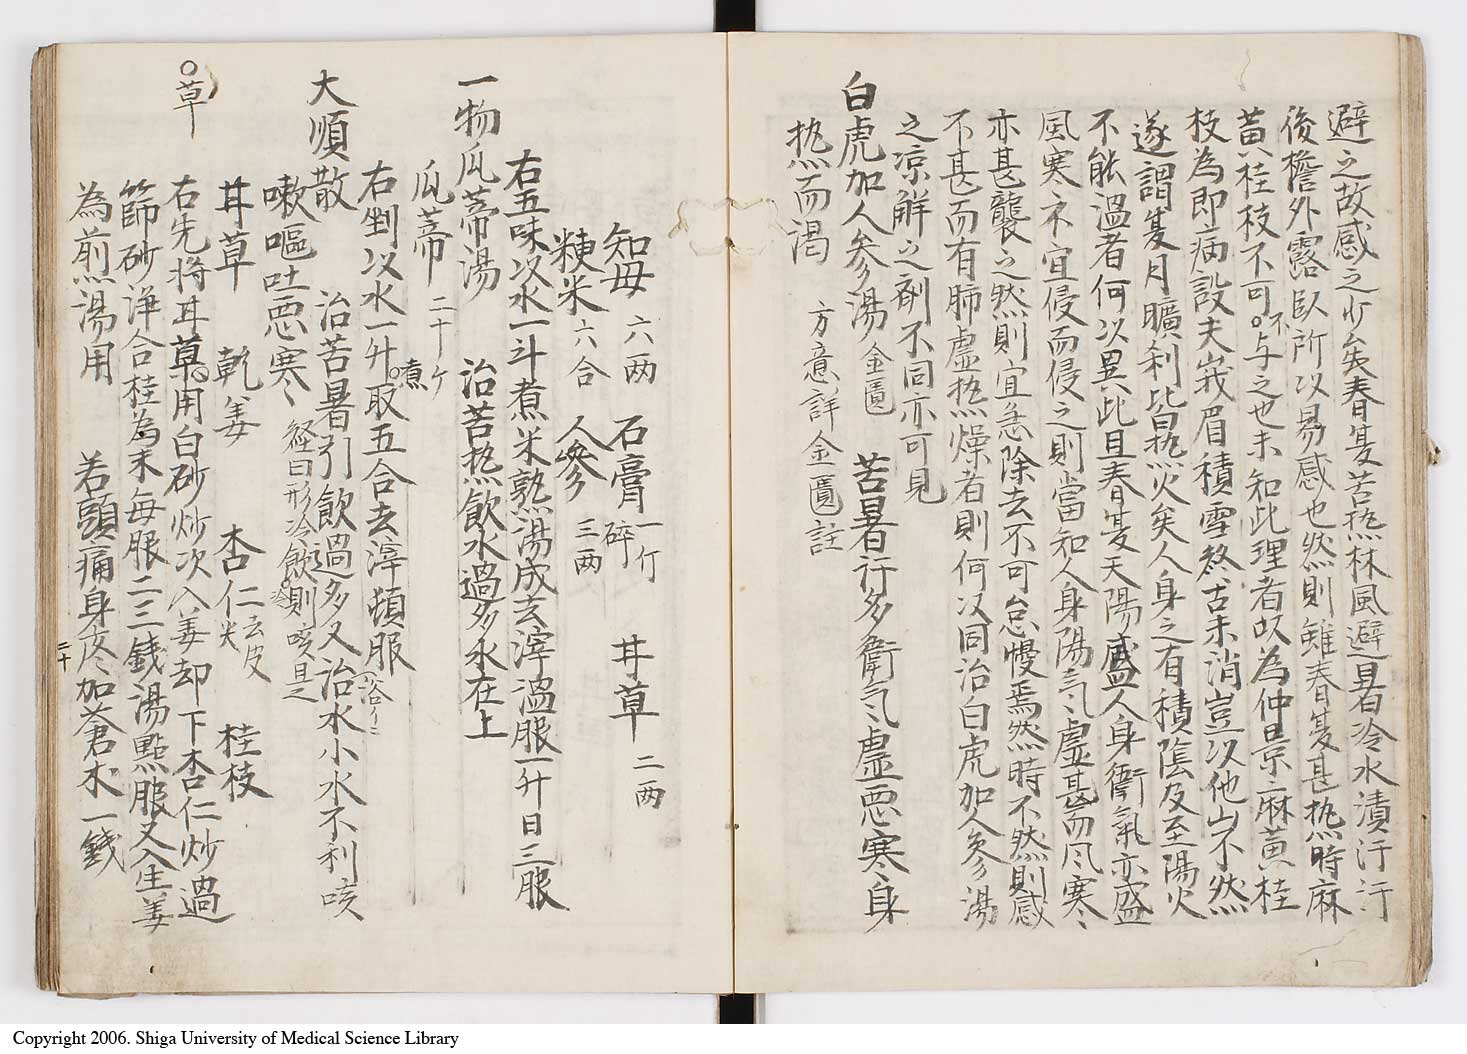 避之故感之少矣春夏苦熱林風避暑冷水漬汗汗
後檐外露臥所以易感也然則雖春夏甚熱時麻
黄桂枝不可不与之也未知此理者故為仲景麻黄桂
枝為即病設夫峩眉積雪終古未消豈以他山不然
遂謂夏月曠刹皆熱火矣人身之有積陰及至陽火
不能溫者何以異此且春夏天陽盛人身衛氣亦盛
風寒不宜侵而侵之則當知人身陽気虛甚而风寒
亦甚襲之然則宜急除去不可怠慢焉然時不然則感
不甚而有肺虛熱燥者則何以同治白虎加人参湯
之凉解之剤不同亦可見
白虎加人参湯 金匱 苦暑行多衛気虛悪寒身
熱而渇 方意詳金匱註
知毋 六两 石膏 一斤碎 甘草 二两
粳米 六合 人參 三两
右五味以水一斗煮米熟湯成去滓溫服一升日三服
一物瓜蒂湯 治苦熱飲水過多水在上
瓜蒂 二十ケ
右剉以水一升煮取五合去滓頓服
大順散 治苦暑引飲過多又治水小水不利咳
嗽嘔吐悪寒 経曰形冷飲冷則咳是之
甘草 乾姜 杏仁 去皮尖 桂枝
右先将甘草用白砂炒次入姜却下杏仁炒過
篩砂浄合桂為末每服二三錢湯點服又入生姜
為煎湯用 若頭痛身疼加蒼朮一錢
○草
二十
Copyright 2006. Shiga University of Medical Science Library